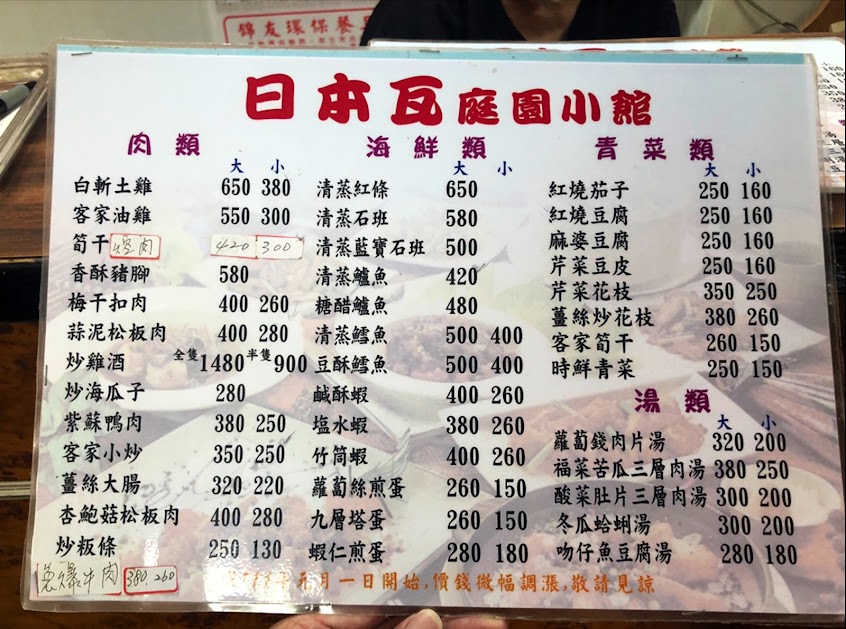 錦友環保餐具
日本瓦庭園小館
肉類
大 小
白斬土雞 650 380
客家油雞 550 300
筍干焢肉 420 300
香酥豬腳 580
梅干扣肉 400 260
蒜泥松板肉 400 280
炒雞酒 全隻1480 半隻900
炒海瓜子 280
紫蘇鴨肉 380 250
客家小炒 350 250
薑絲大腸 320 220
杏鮑菇松板肉 400 280
炒板條 250 130
蔥爆牛肉 380 260
海鮮類
大 小
清蒸紅條 650
清蒸石班 580
清蒸藍寶石班 500
清蒸鱸魚 420
糖醋鱸魚 480
清蒸鱈魚 500 400
豆酥鱈魚 500 400
鹹酥蝦 400 260
塩水蝦 380 260
竹筒蝦 400 260
蘿蔔絲煎蛋 260 150
九層塔蛋 260 150
蝦仁煎蛋 280 180
青菜類
大 小
紅燒茄子 250 160
紅燒豆腐 250 160
麻婆豆腐 250 160
芹菜豆皮 250 160
芹菜花枝 350 250
薑絲炒花枝 380 260
客家筍干 260 150
時鮮青菜 250 150
湯類
大 小
蘿蔔錢肉片湯 320 200
福菜苦瓜三層肉湯 380 250
酸菜肚片三層肉湯 300 200
冬瓜蛤蜊湯 300 200
吻仔魚豆腐湯 280 180
元月一日開始,價錢微幅調漲,敬請見諒